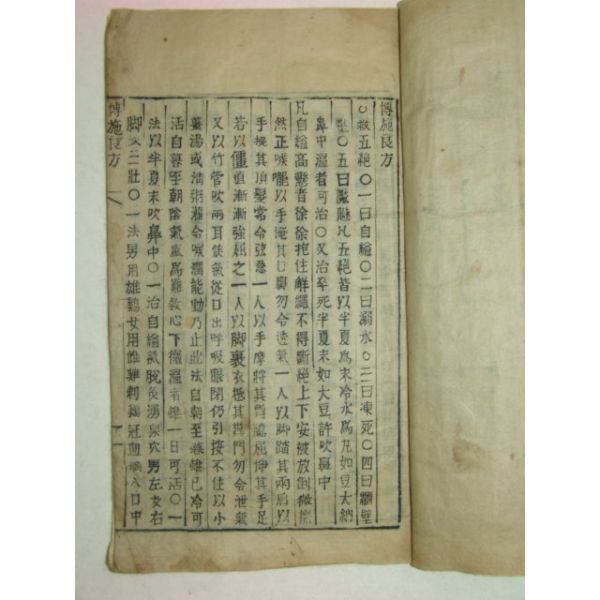 博施良方
○救五絶○一曰自縊○二曰溺水○三曰凍死○四曰墻壁
壓○五曰魘魅凡五絶皆以半夏爲末冷水爲丸如豆大納
鼻中溫者可治○又治卒死半夏末如大豆許吹鼻中
凡自縊高懸者徐徐抱住解繩不得斷絶上下安被放倒微微
然正喉嚨以手掩其口鼻勿令透氣一人以脚踏其兩肩以
手挽其頂髮常令弦急一人以手摩將其胸臆屈伸其手足
若以僵直漸漸強屈之一人以脚裹衣抵其糞門勿令泄氣
又以竹管吹兩耳候氣從口出呼吸眼開仍引按不住以小
薑湯或淸粥灌令喉潤能動乃止此法自朝至暮雖已冷可
活自暮至朝陰氣盛爲難救心下微溫者雖一日可活○一
法以半夏末吹鼻中○一治自縊氣脫灸湧泉穴男左女右
脚灸三壯○一法男用雄鷄女用雌雞刺鷄冠血滴入口中
博施良方
一